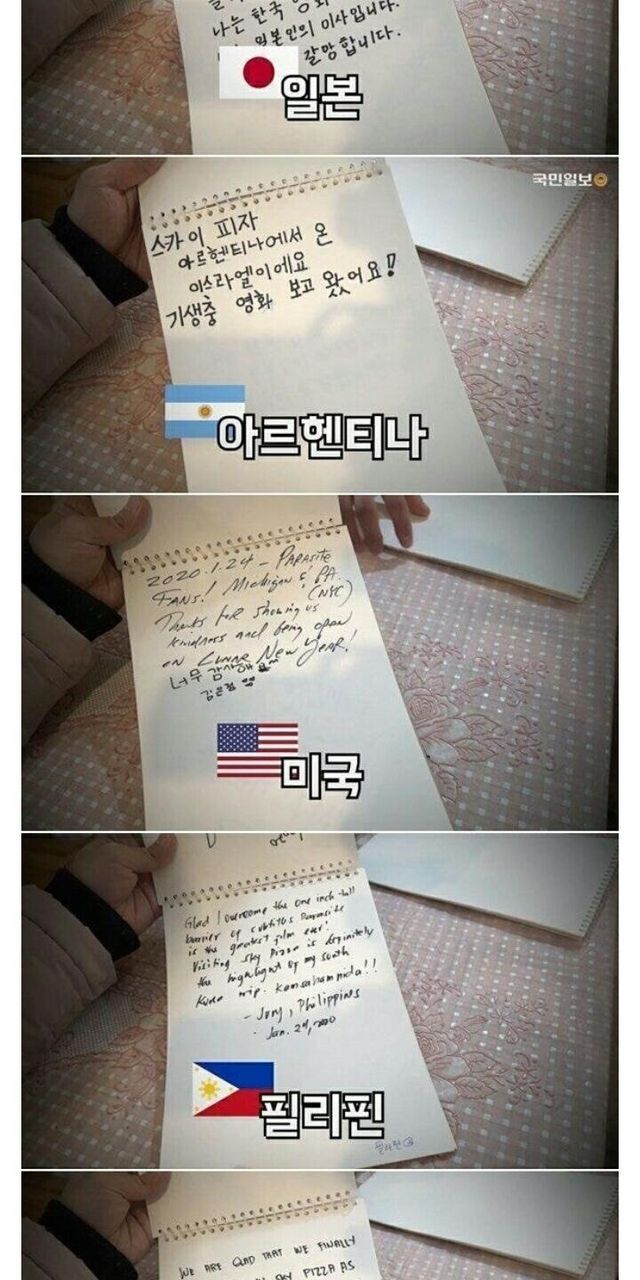 나는 한국 영화
일본인의 이사입니다.
갈망합니다.
일본
국민일보
스카이 피자
아르헨티나에서 온
이스라엘이에요
기생충 영화 보고 왔어요!
아르헨티나
2020.1.24 - PARASITE
FANS! Michigan & PA.
(NYC)
Thanks for showing us
kindness and being open
on Lunar New Year!
너무 감사해요
김은정
미국
Glad I overcome the one inch-tall
barrier of subtitles Parasite
is the greatest film ever!
Visiting Sky Pizza is definitely
the highlight of my south
Korea trip. Kamsahamnida!!
- Jory, Philippines
- Jan. 24, 2020
필리핀
필리핀
WE ARE GLAD THAT WE FINALLY
SKY PIZZA AS